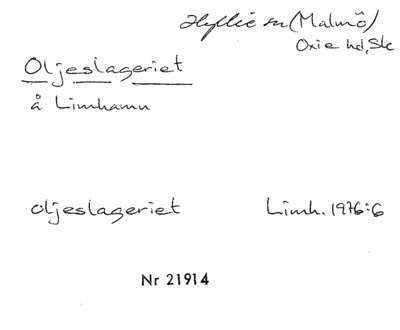 Hyllie sn (Malmö)
Oxie hd, Skc
Oljeslageriet
å Limhamn
oljeslageriet Limh. 1976:6
Nr 21914